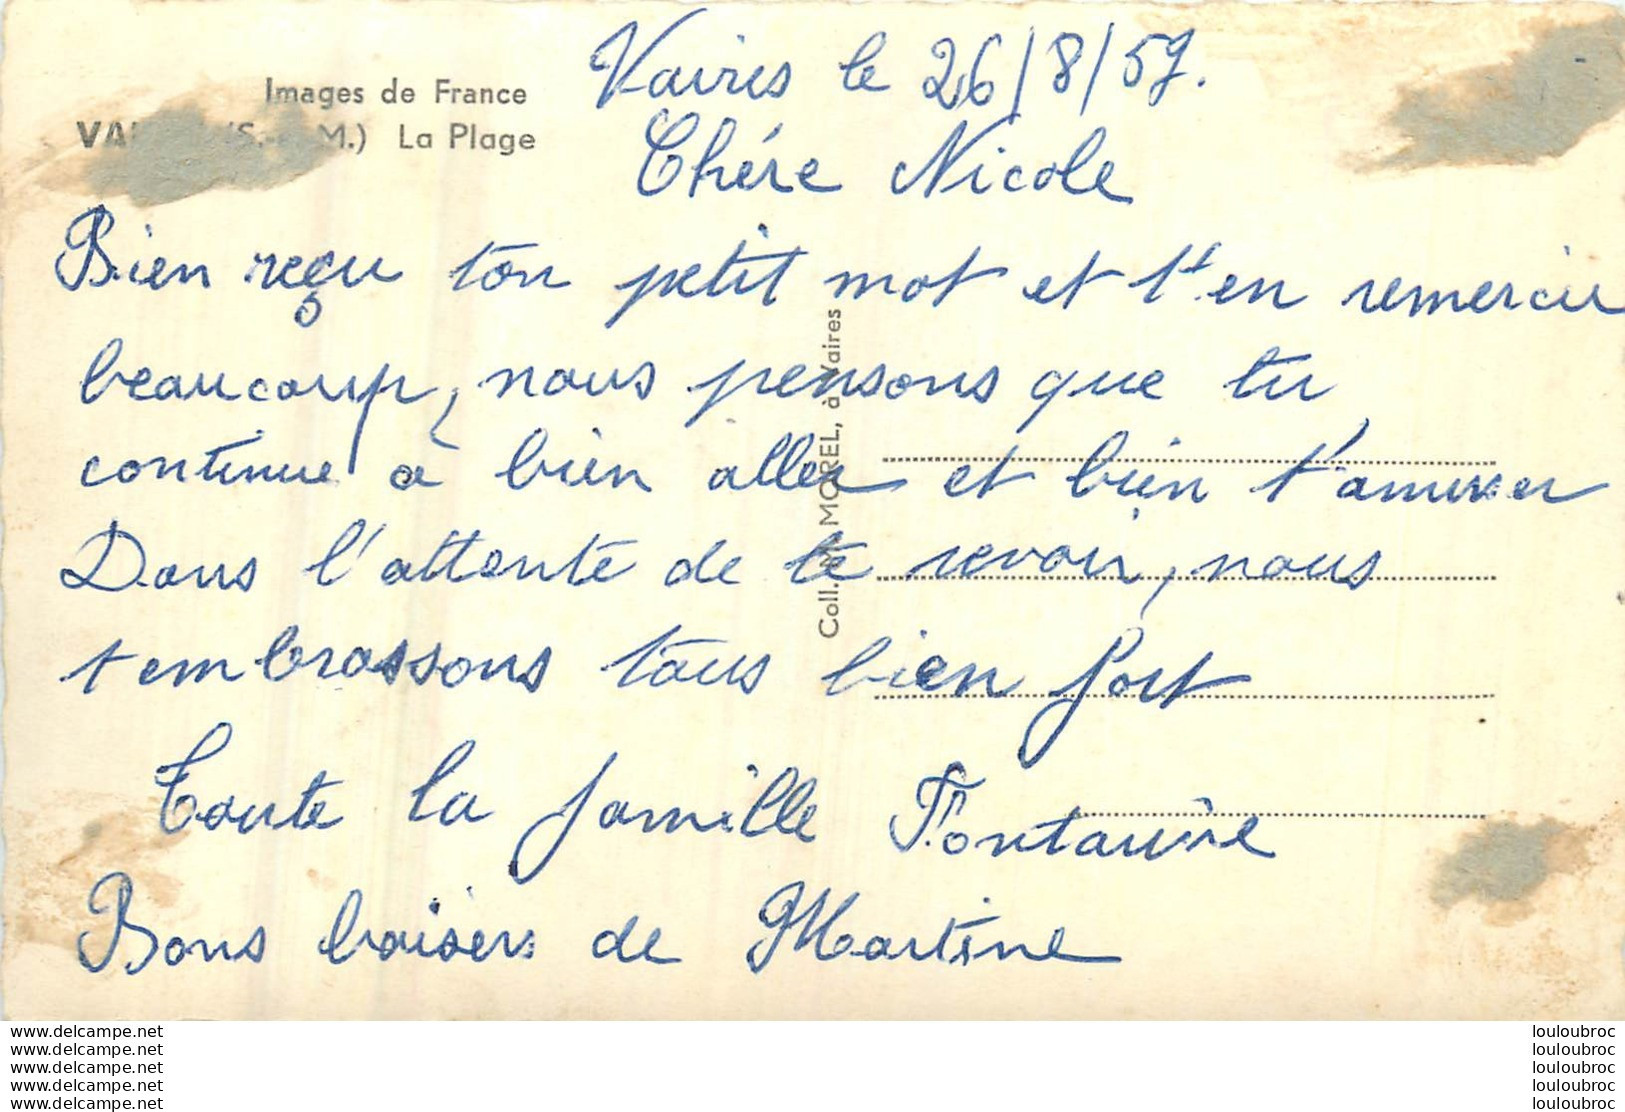 Images de France
(S.- M.) La Plage
Vaires le 26/8/57.
Chére Nicole
Bien reçu ton petit mot et t'en remercie
beaucoup, nous pensons que tu
continue à bien aller et bien t'amuser
Dans l'attente de te revoir, nous
t embrassons tous bien fort
Toute la famille Fontaine
Bons baisers de Martine
Coll. MOREL, à Vaires
www.delcampe.net
www.delcampe.net
www.delcampe.net
www.delcampe.net
www.delcampe.net
louloubroc
louloubroc
louloubroc
louloubroc
louloubroc